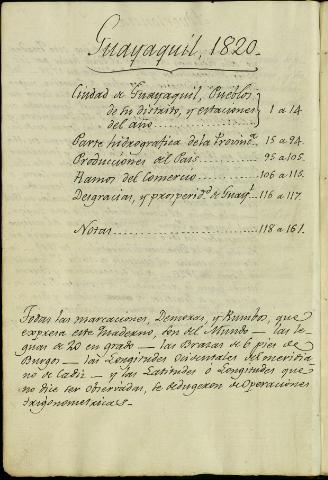 Guayaquil, 1820.
Ciudad de Guayaquil, Pueblos
de su distrito, y estaciones
del año 1 a 14
Parte hidrografica de la Provincª 15 a 94.
Producciones del Pais 95 a 105.
Ramos del Comercio 106 a 115.
Desgracias, y prosperidˢ de Guayˡ 116 a 117.
Notas 118 a 161.
Todas las marcaciones, Demoras, y Rumbos, que
expresa este Quaderno, son del Mundo — las le-
guas de 20 en grado — las Brazas de 6 pies de
Burgos — las Longitudes Occidentales del meridia
no de Cadiz — y las Latitudes ó Longitudes que
no dice ser Observadas, se dedugeron de Operaciones
trigonometricas —